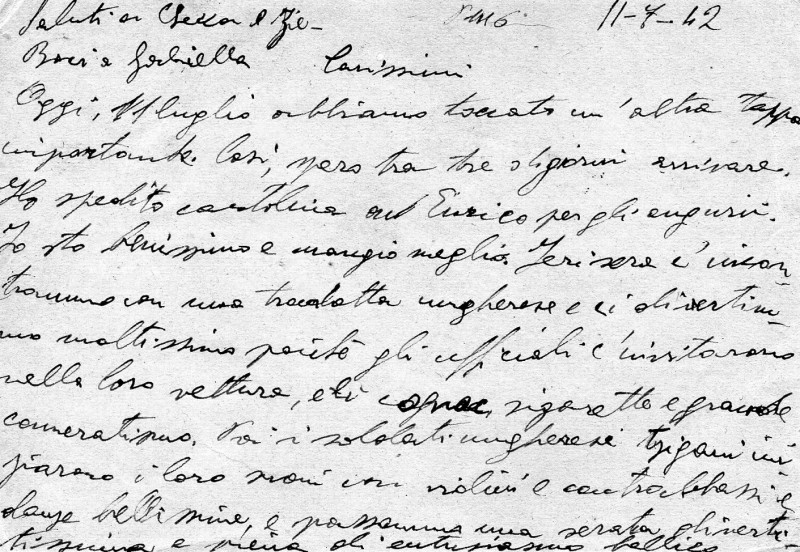 Saluti a Checca e Zie-
11-7-42
Baci a Gabriella Carissimi
Oggi, 11 luglio abbiamo toccato un'altra tappa
importante. Così, spero tra tre giorni arrivare.
Ho spedito cartolina ad Enrico per gli auguri.
Io sto benissimo e mangio meglio. Ieri sera c'incon-
trammo con una tradotta ungherese e ci divertim-
mo moltissimo poichè gli ufficiali c'invitarono
nella loro vettura, e lì cognac, sigarette e grande
cameratismo. Poi i soldati ungheresi tzigani ini
ziarono i loro suoni con violini e contrabbassi e
danze bellissime, e passammo una serata diverti
tissima e piena di entusiasmo